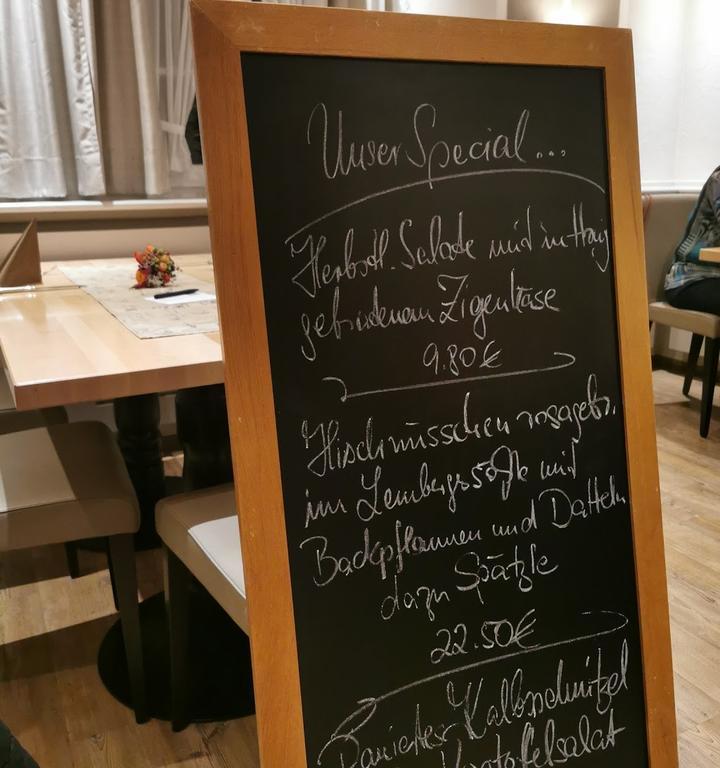 Unser Special...
Herbstl. Salate mid im Honig
gebratenem Zigenkäse
9.80€
Hischnüsschen rosagebr.
im Lembergssoße mit
Backpflaumen und Datteln
dazu Spätzle
22.50€
Paniertes Kalbsschnitzel
Kartoffelsalat